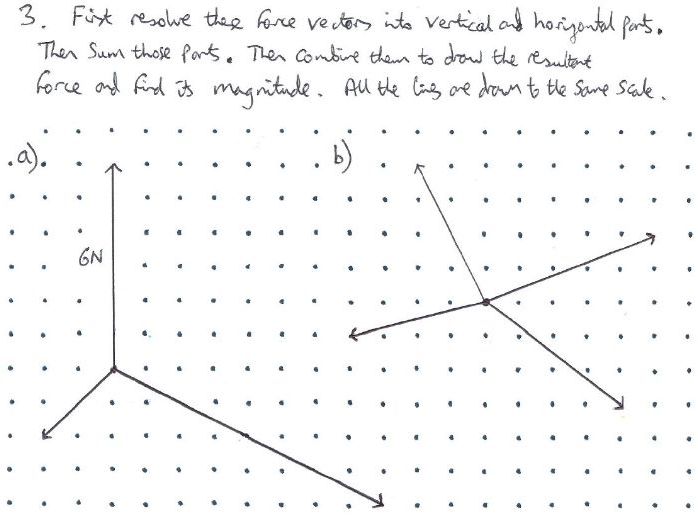 3. First resolve these force vectors into vertical and horizontal parts.
Then Sum those Parts. Then Combine them to draw the resultant
force and find its magnitude. All the lines are drawn to the same Scale.
a)
b)
6N